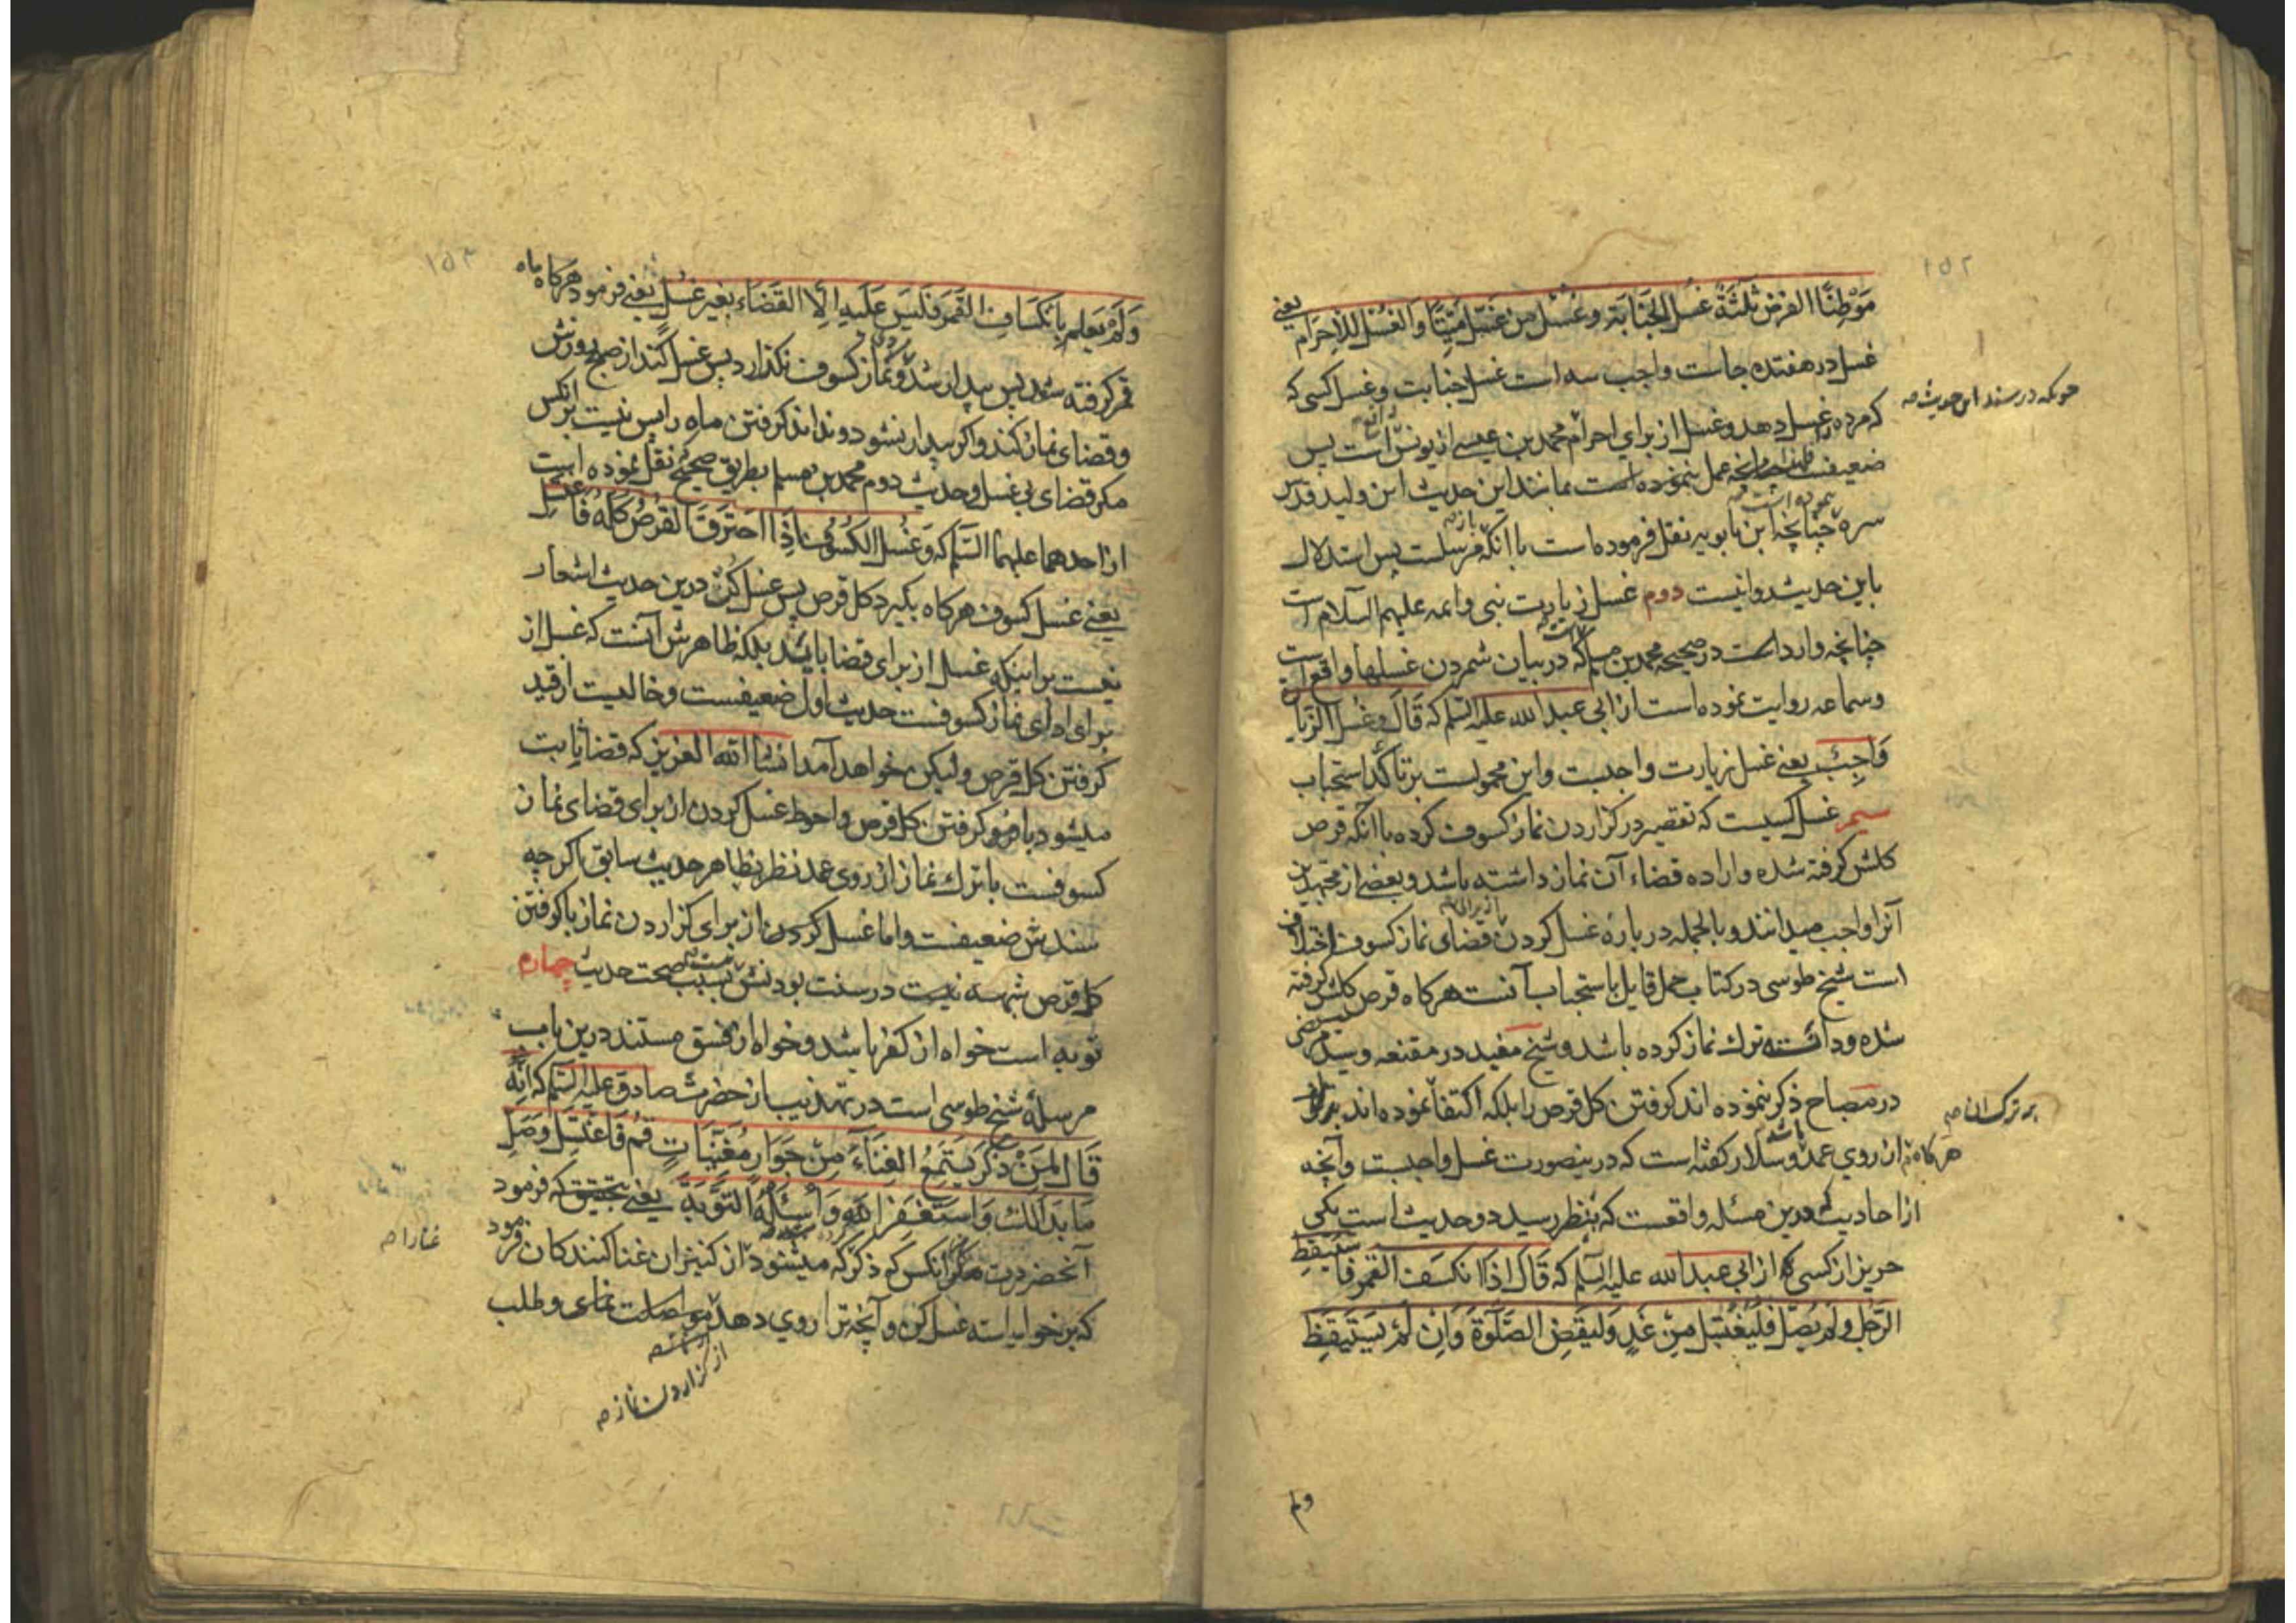 ۲۵۱
مَوْطِنًا الفرض ثَلٰثَةُ غسل الجَنَابَة وغُسْل من غَسَّل مَيِّتًا وَالغُسْل لِلْاِحرَام یعنی
غسل در هفتده جاست واجب سه است غسل جنابت وغسل کسی که
که مرده را غسل دهد وغسل از برای احرام محمد بن عیسی از یونس است پس
ضعیفست عمل ننموده است بمانند این حدیث ابن ولید قدس
سره چنانچه ابن بابویه نقل فرموده است با آنکه مرسلست پس استدلال
باین حدیث روا نیست دوم غسل زیارت نبی وائمه علیهم السلام است
چنانچه وارد است در صحیحه محمد بن مسلم که در بیان شمردن غسلها واقع است
وسماعه روایت نموده است از ابی عبد الله علیه السلم که قَالَ وغُسل الزِّیارة
وَاجِبٌ یعنی غسل زیارت واجبست واین محمولست بر تاکّد استحباب
سیم غسل کسیست که تقصیر در گزاردن نماز کسوف کرده با آنکه قرص
کلش گرفته شده واراده قضاء آن نماز داشته باشد وبعضی از مجتهدین
آنرا واجب میدانند وبالجمله در باره غسل کردن قضای نماز کسوف اختلاف
است شیخ طوسی در کتاب جمل قایل باستحباب آنست هرگاه قرص کلش گرفته
شده ودانسته ترك نماز کرده باشد وشیخ مفید در مقنعه وسید مرتضی
در مصباح ذکر ننموده اند گرفتن کل قرص را بلکه اکتفا نموده اند
هرگاه از روی عمد باشد وسلار گفته است که در ینصورت غسل واجبست وآنچه
از احادیث درین مسئله واقعست که بنظر رسید دو حدیث است یکی
حریز از کسی که از ابی عبد الله علیه السلم که قَالَ اِذَا انکَسَفَ القَمَر فَاستیقظ
الرّجل وَلَم یُصَلِّ فَلیَغْتَسِل مِنْ غَدٍ وَلیَقضِ الصَّلٰوةَ وَاِنْ لَمْ یَستَیقِظ
ولم
۲۵۱
وَلَمْ یَعلَم بِانکسَافِ القَمَر فَلَیسَ عَلَیهِ اِلَّا القَضَاء بِغَیرِ غُسْلٍ یعنی فرمود هرگاه ماه
قمر گرفته شد پس بیدار شد ونماز کسوف نگذارد پس غسل کند از صبح روزش
وقضای نماز کند واگر بیدار نشود ونداند گرفتن ماه را پس نیست بر انکس
مگر قضای بی غسل وحدیث دوم محمد بن مسلم بطریق صحیح نقل نموده است
از احدهما علیهما السّلم که وَغُسْلُ الکُسُوف اِذَا احتَرَقَ القُرصُ کُلّهُ فَاغتسِل
یعنی غسل کسوف هرگاه بگیرد کل قرص پس غسل کن درین حدیث اشعار
نیست بر اینکه غسل از برای قضا باشد بلکه ظاهرش آنست که غسل از
برای ادای نماز کسوفست حدیث اول ضعیفست وخالیست از قید
گرفتن کل قرص ولیکن خواهد آمد انشاالله العزیز که قضا ثابت
میشود با گرفتن کل قرص واحوط غسل کردن از برای قضای نماز
کسوفست با ترك نماز از روی عمد نظر بظاهر حدیث سابق اگر چه
سندش ضعیفست واما غسل کردن از برای گزاردن نماز با گرفتن
کل قرص شبهه نیست در سنت بودنش بسبب صحت حدیث چهارم
توبه است خواه از کفر باشد وخواه از فسق مستند درین باب
مرسلهٔ شیخ طوسی است در تهذیب از حضرت صادق علیه السّلم که اِنَّهُ
قَالَ لِمَنْ ذَکَرَ یَستَمِعُ الغِنَاءَ مِنْ جَوَارٍ مُغَنِّیَاتٍ قُم فَاغتَسِل وَصَلِّ
مَا بَدَالَك وَاستَغفِرِ الله وَاَسئَلهُ التّوبَةَ یعنی بتحقیق که فرمود
آنحضرت انکس که ذکر که میشنود از کنیزان غنا کنندگان فرمود
که بر خیز غسل کن وآنچه ترا روی دهد نمای وطلب
غنا را صه
از گزاردن نماز صه